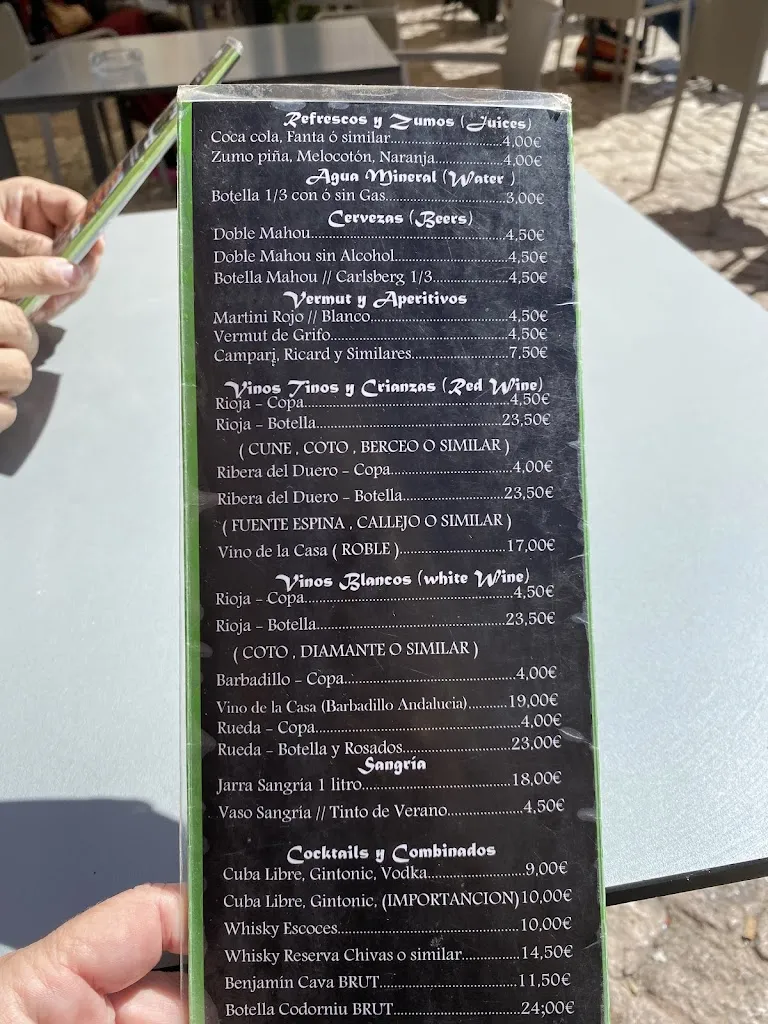 Refrescos y Zumos (Juices)
Coca cola, Fanta ó similar..........................4,00€
Zumo piña, Melocotón, Naranja................4,00€
Agua Mineral (Water )
Botella 1/3 con ó sin Gas............................3,00€
Cervezas (Beers)
Doble Mahou............................................4,50€
Doble Mahou sin Alcohol..........................4,50€
Botella Mahou // Carlsberg 1/3..................4,50€
Vermut y Aperitivos
Martini Rojo // Blanco................................4,50€
Vermut de Grifo.........................................4,50€
Campari, Ricard y Similares.......................7,50€
Vinos Tinos y Crianzas (Red Wine)
Rioja - Copa...............................................4,50€
Rioja - Botella...........................................23,50€
( CUNE , COTO , BERCEO O SIMILAR )
Ribera del Duero - Copa............................4,00€
Ribera del Duero - Botella........................23,50€
( FUENTE ESPINA , CALLEJO O SIMILAR )
Vino de la Casa ( ROBLE ).........................17,00€
Vinos Blancos (white Wine)
Rioja - Copa................................................4,50€
Rioja - Botella............................................23,50€
( COTO , DIAMANTE O SIMILAR )
Barbadillo - Copa.......................................4,00€
Vino de la Casa (Barbadillo Andalucia).........19,00€
Rueda - Copa..............................................4,00€
Rueda - Botella y Rosados.........................23,00€
Sangría
Jarra Sangría 1 litro....................................18,00€
Vaso Sangría // Tinto de Verano..................4,50€
Cocktails y Combinados
Cuba Libre, Gintonic, Vodka.......................9,00€
Cuba Libre, Gintonic, (IMPORTANCION)10,00€
Whisky Escoces...........................................10,00€
Whisky Reserva Chivas o similar..............14,50€
Benjamín Cava BRUT.................................11,50€
Botella Codorniu BRUT..............................24;00€